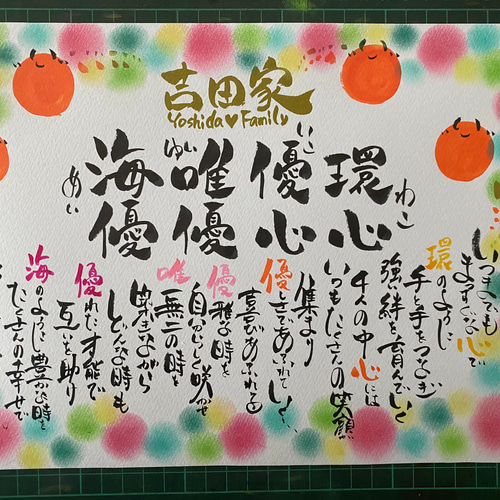 吉田家
Yoshida♥Family
環心
わこ
優心
いこ
唯優
ゆい
海優
めい
いつまでも
まっすぐな心で
環のように
手と手をつなぎ
強い絆を育んでいく
4人の中心には
いつもたくさんの笑顔
集まり
優しさであふれていく
喜びあふれる
優雅な時を
自分らしく咲かせ
唯一無二の時を
築きながら
どんな時も
優れた才能で
互いを助け
海のように豊かな時を
たくさんの幸せで